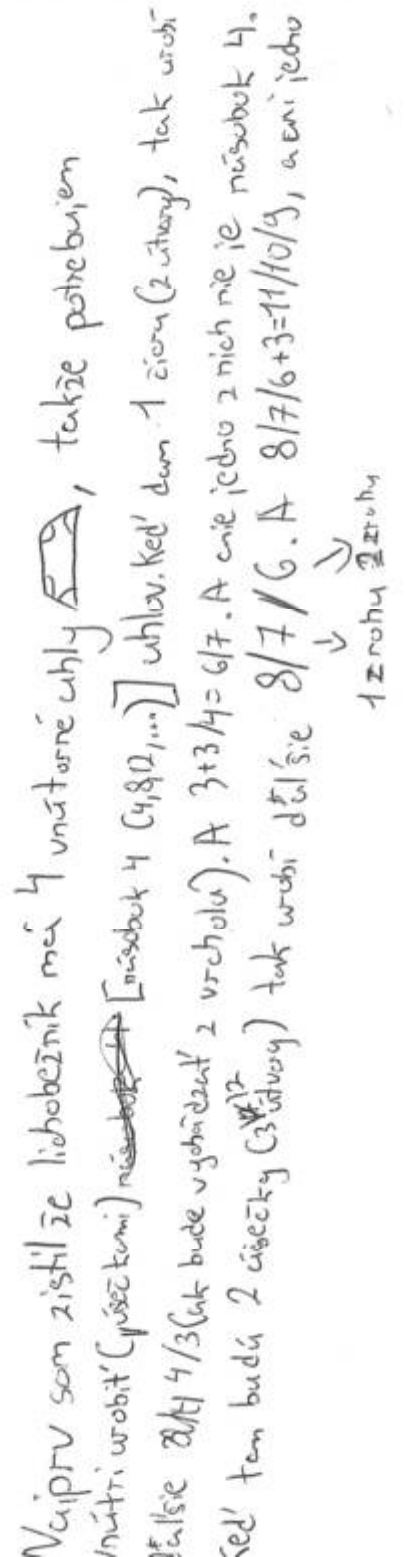 Najprv som zistil že lichobežník má 4 vnútorné uhly, takže potrebujem
vnútri urobiť (úsečkami) [násobok 4 (4,8,12,...)] uhlov. Keď dam 1 čiaru (2 útvary), tak urobí
ďalšie 4/3 (ak bude vychádzať z vrcholu). A 3+3/4=6/7. A ani jedno z nich nie je násobok 4.
Keď tam budú 2 úsečky (3 útvary) tak urobí ďalšie 8/7/6. A 8/7/6+3=11/10/9, a ani jedno
1 z rohu 2 z rohu